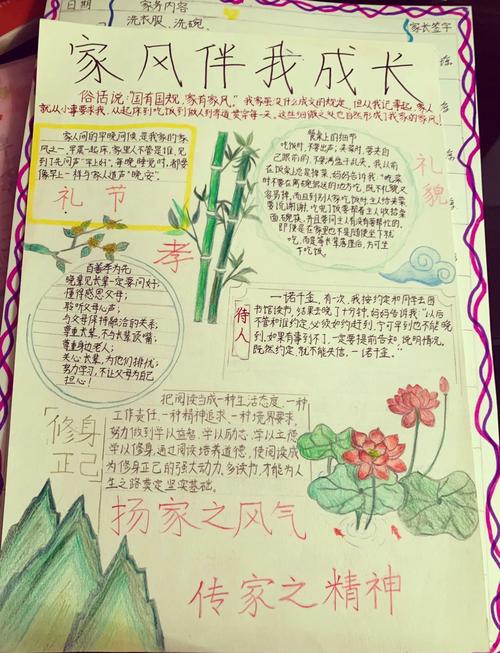 日期
家务内容
洗衣服、洗碗、
家长签字
家风伴我成长
俗话说:"国有国规,家有家风。"我家虽没什么成文的规定,但从我记事起,家人
就从小事要求我,从起床到吃饭到做人到孝道贯穿每一天。这些细微之处也自然形成了我家的家风!
家人间的早晚问候,是我家的家
风之一,早晨一起床,家里人不管是谁,见
到了先问声"早上好",每晚睡觉时,都要
像早上一样与家人道声"晚安"。
礼 节
餐桌上的细节
吃饭时,不要出声,夹菜时,要夹自
己跟前的,不要满盘子乱夹。我从前
在饭桌上总是掉菜,妈妈告诉我:"吃菜
时不要在离碗盘远的地方吃,既不礼貌又
容易掉,而且到别人家吃饭时,主人给夹菜
要说谢谢,吃完了饭要帮着主人收拾桌
面、碗筷,并且要问主人有没有要帮忙的,
即便是在家里也不是随便坐下就
吃,而是等长辈落座后,方可坐
下吃饭。
礼
貌
孝
百善孝为先
晚辈见长辈一定要问好;
懂得感恩父母;
聆听父母心声;
与父母保持融洽的关系;
尊重长辈,不与长辈顶嘴;
尊重身边老人;
关心长辈,为他们排忧;
努力学习,不让父母为自己
担心!
待人
一诺千金,有次,我按约和同学去图
书馆读书,结果去晚了十分钟,妈妈告诉我:"以后
不管和谁约定,必须如约赶到,宁可早到也不能晚
到,如果有事到不了,一定要提前告知,说明情况,
既然约定,就不能失信,一诺千金。"
修身
正己
把阅读当成一种生活态度、一种
工作责任、一种精神追求、一种境界要求,
努力做到学以益智、学以励志、学以立德、
学以修身,通过阅读培养道德,使阅读成
为修身正己的强大动力,多读书,才能为人
生之路奠定坚实基础。
扬家之风气
传家之精神